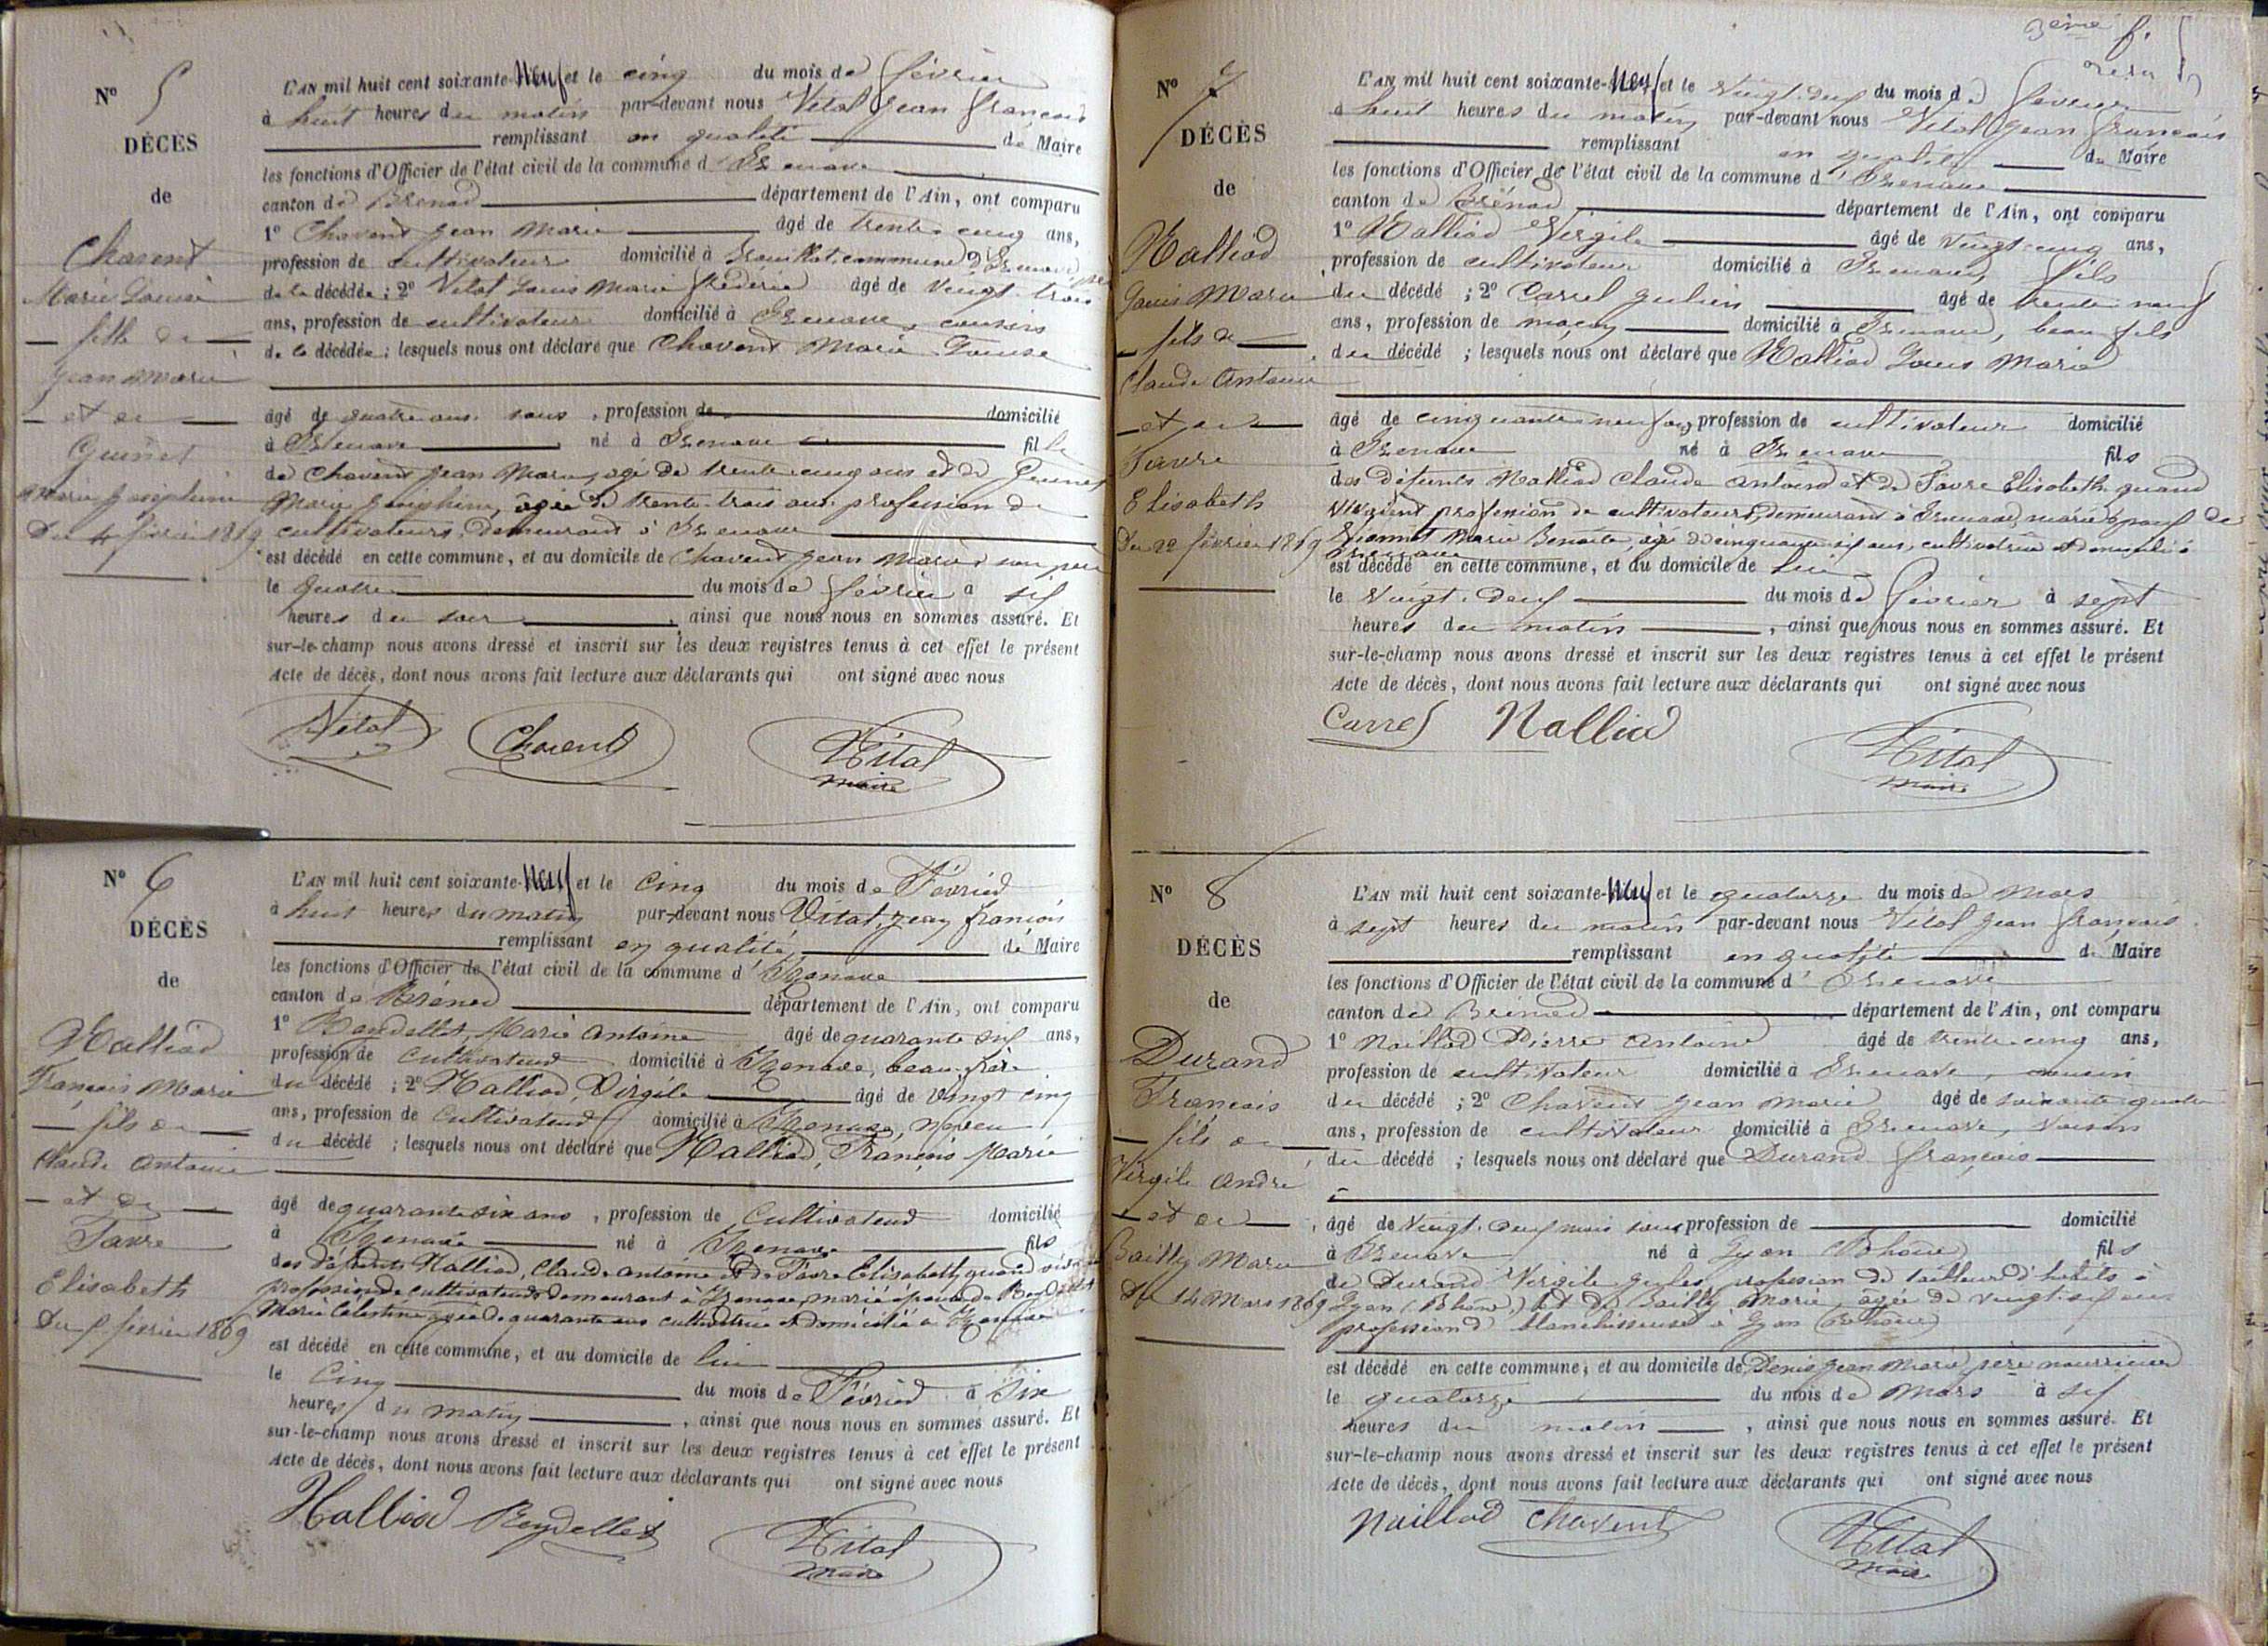 N° 5
DÉCÈS
de
Chavent
Marie Louise
fille de
Jean Marie
et de
Guinet
Marie Josephine
Du 4 février 1869
L'AN mil huit cent soixante-Neuf et le cinq du mois de février
à huit heures du matin par-devant nous Vital Jean François
remplissant en qualité de Maire
les fonctions d'Officier de l'état civil de la commune d'Izenave
canton de Brénod département de l'Ain, ont comparu
1° Chavent Jean Marie âgé de trente cinq ans,
profession de cultivateur domicilié à commune d'Izenave, père
de la décédée ; 2° Vital Louis Marie Frédéric âgé de vingt trois
ans, profession de cultivateur domicilié à Izenave, cousin
de la décédée ; lesquels nous ont déclaré que Chavent Marie Louise
âgé de quatre ans sans , profession de domicilié
à Izenave né à Izenave fille
de Chavent Jean Marie, agé de trente cinq ans et de Guinet
Marie Josephine, agée de trente trois ans profession de
cultivateurs, demeurant à Izenave
est décédé en cette commune, et au domicile de Chavent Jean Marie son père
le quatre du mois de février à six
heures du soir , ainsi que nous nous en sommes assuré. Et
sur-le-champ nous avons dressé et inscrit sur les deux registres tenus à cet effet le présent
Acte de décès, dont nous avons fait lecture aux déclarants qui ont signé avec nous
Vital Chavent Vital
maire
N° 6
DÉCÈS
de
Nalliod
François Marie
fils de
Claude Antoine
et de
Favre
Elisabeth
Du 5 février 1869
L'AN mil huit cent soixante-Neuf et le Cinq du mois de Février
à huit heures du matin par-devant nous Vital, Jean François
remplissant en qualité de Maire
les fonctions d'Officier de l'état civil de la commune d'Izenave
canton de Brénod département de l'Ain, ont comparu
1° Reydellet, Marie Antoine âgé de quarante six ans,
profession de Cultivateur domicilié à Izenave, beau-frère
du décédé ; 2° Nalliod, Virgile âgé de vingt cinq
ans, profession de Cultivateur domicilié à Izenave, Neveu
du décédé ; lesquels nous ont déclaré que Nalliod, François Marie
âgé de quarante six ans , profession de Cultivateur domicilié
à Izenave né à Izenave fils
des défunts Nalliod, Claude Antoine et de Favre Elisabeth, quand vivaient
profession de cultivateurs demeurant à Izenave, marié époux de Reydellet
Marie Celestine agée de quarante ans cultivatrice et domiciliée à Izenave
est décédé en cette commune, et au domicile de lui
le Cinq du mois de Février à Six
heures du matin , ainsi que nous nous en sommes assuré. Et
sur-le-champ nous avons dressé et inscrit sur les deux registres tenus à cet effet le présent
Acte de décès, dont nous avons fait lecture aux déclarants qui ont signé avec nous
Nalliod Reydellet Vital
maire
3ème f.
N° 7
DÉCÈS
de
Nalliod
Louis Marie
fils de
Claude Antoine
et de
Favre
Elisabeth
Du 22 février 1869
L'AN mil huit cent soixante-Neuf et le Vingt-deux du mois de février
à huit heures du matin par-devant nous Vital Jean François
remplissant en qualité de Maire
les fonctions d'Officier de l'état civil de la commune d'Izenave
canton de Brénod département de l'Ain, ont comparu
1° Nalliod Virgile âgé de vingt cinq ans,
profession de cultivateur domicilié à Izenave, fils
du décédé ; 2° Carrel Julien âgé de trente neuf
ans, profession de maçon domicilié à Izenave, beau fils
du décédé ; lesquels nous ont déclaré que Nalliod Louis Marie
âgé de cinquante neuf ans, profession de cultivateur domicilié
à Izenave né à Izenave fils
des défunts Nalliod Claude Antoine et de Favre Elisabeth quand
vivaient profession de cultivateurs, demeurant à Izenave, marié époux de
Marie Benoite, agée de cinquante six ans, cultivatrice et domiciliée à
Izenave
est décédé en cette commune, et au domicile de lui
le Vingt-deux du mois de février à sept
heures du matin , ainsi que nous nous en sommes assuré. Et
sur-le-champ nous avons dressé et inscrit sur les deux registres tenus à cet effet le présent
Acte de décès, dont nous avons fait lecture aux déclarants qui ont signé avec nous
Carrel Nalliod Vital
maire
N° 8
DÉCÈS
de
Durand
François
fils de
Virgile André
et de
Bailly Marie
Du 14 Mars 1869
L'AN mil huit cent soixante-Neuf et le quatorze du mois de Mars
à sept heures du matin par-devant nous Vital Jean François
remplissant en qualité de Maire
les fonctions d'Officier de l'état civil de la commune d'Izenave
canton de Brénod département de l'Ain, ont comparu
1° Naillod Pierre Antoine âgé de trente-cinq ans,
profession de cultivateur domicilié à Izenave, cousin
du décédé ; 2° Chavent Jean Marie âgé de soixante quatre
ans, profession de cultivateur domicilié à Izenave, voisin
du décédé ; lesquels nous ont déclaré que Durand François
âgé de Vingt-deux mois sans profession de domicilié
à Izenave né à Lyon (Rhône) fils
de Durand Virgile Jules, profession de tailleur d'habits à
Lyon (Rhône) et de Bailly Marie agée de vingt-six ans
profession de blanchisseuse à Lyon (Rhône)
est décédé en cette commune, et au domicile de Denis Jean Marie père nourricier
le quatorze du mois de Mars à six
heures du matin , ainsi que nous nous en sommes assuré. Et
sur-le-champ nous avons dressé et inscrit sur les deux registres tenus à cet effet le présent
Acte de décès, dont nous avons fait lecture aux déclarants qui ont signé avec nous
Naillod Chavent Vital
maire